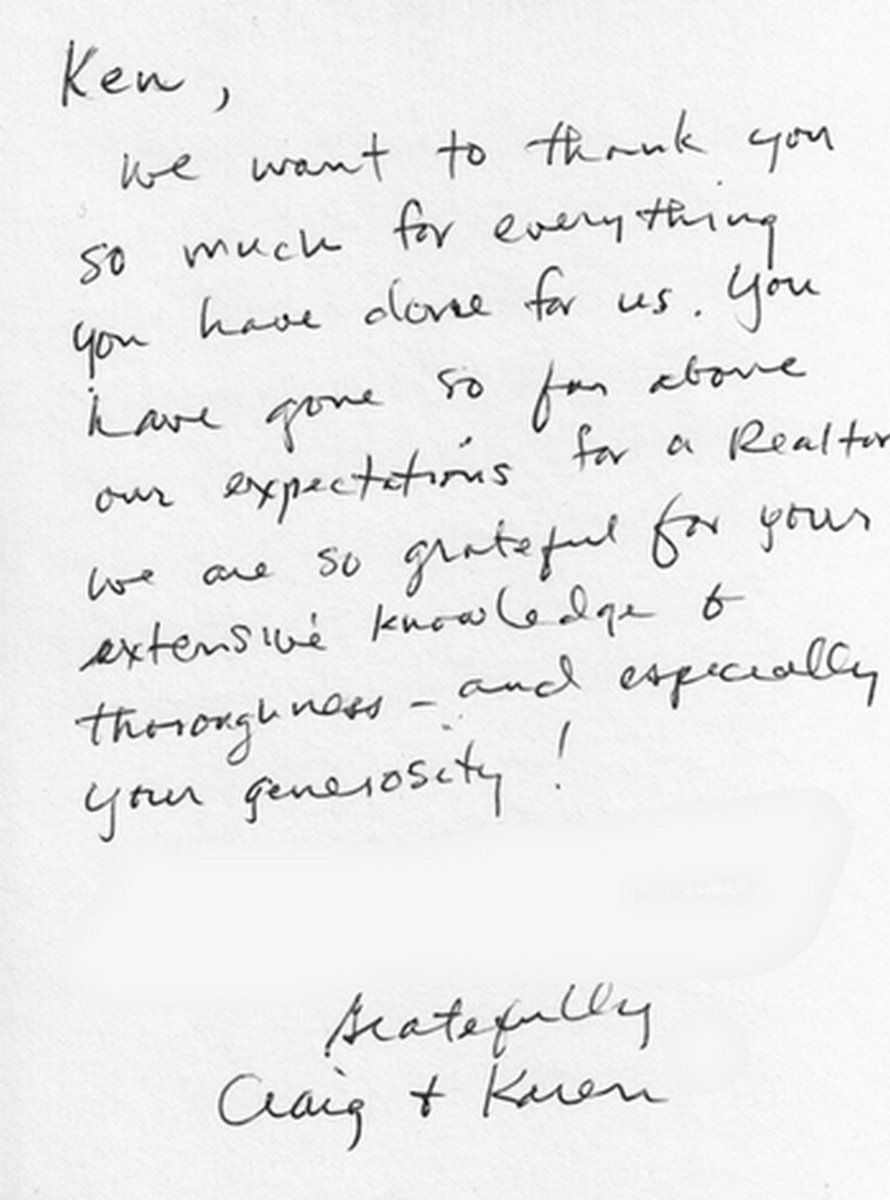 Ken,
We want to thank you
so much for everything
you have done for us. You
have gone so far above
our expectations for a Realtor
We are so grateful for your
extensive knowledge &
thoroughness - and especially
your generosity!
Gratefully
Craig + Karen